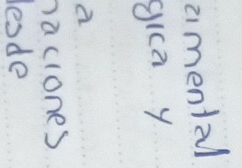 imental
gica y
a
aciones
esde